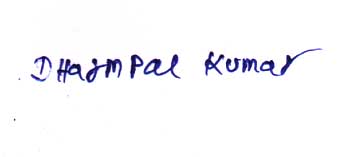 DHarmPal Kumar